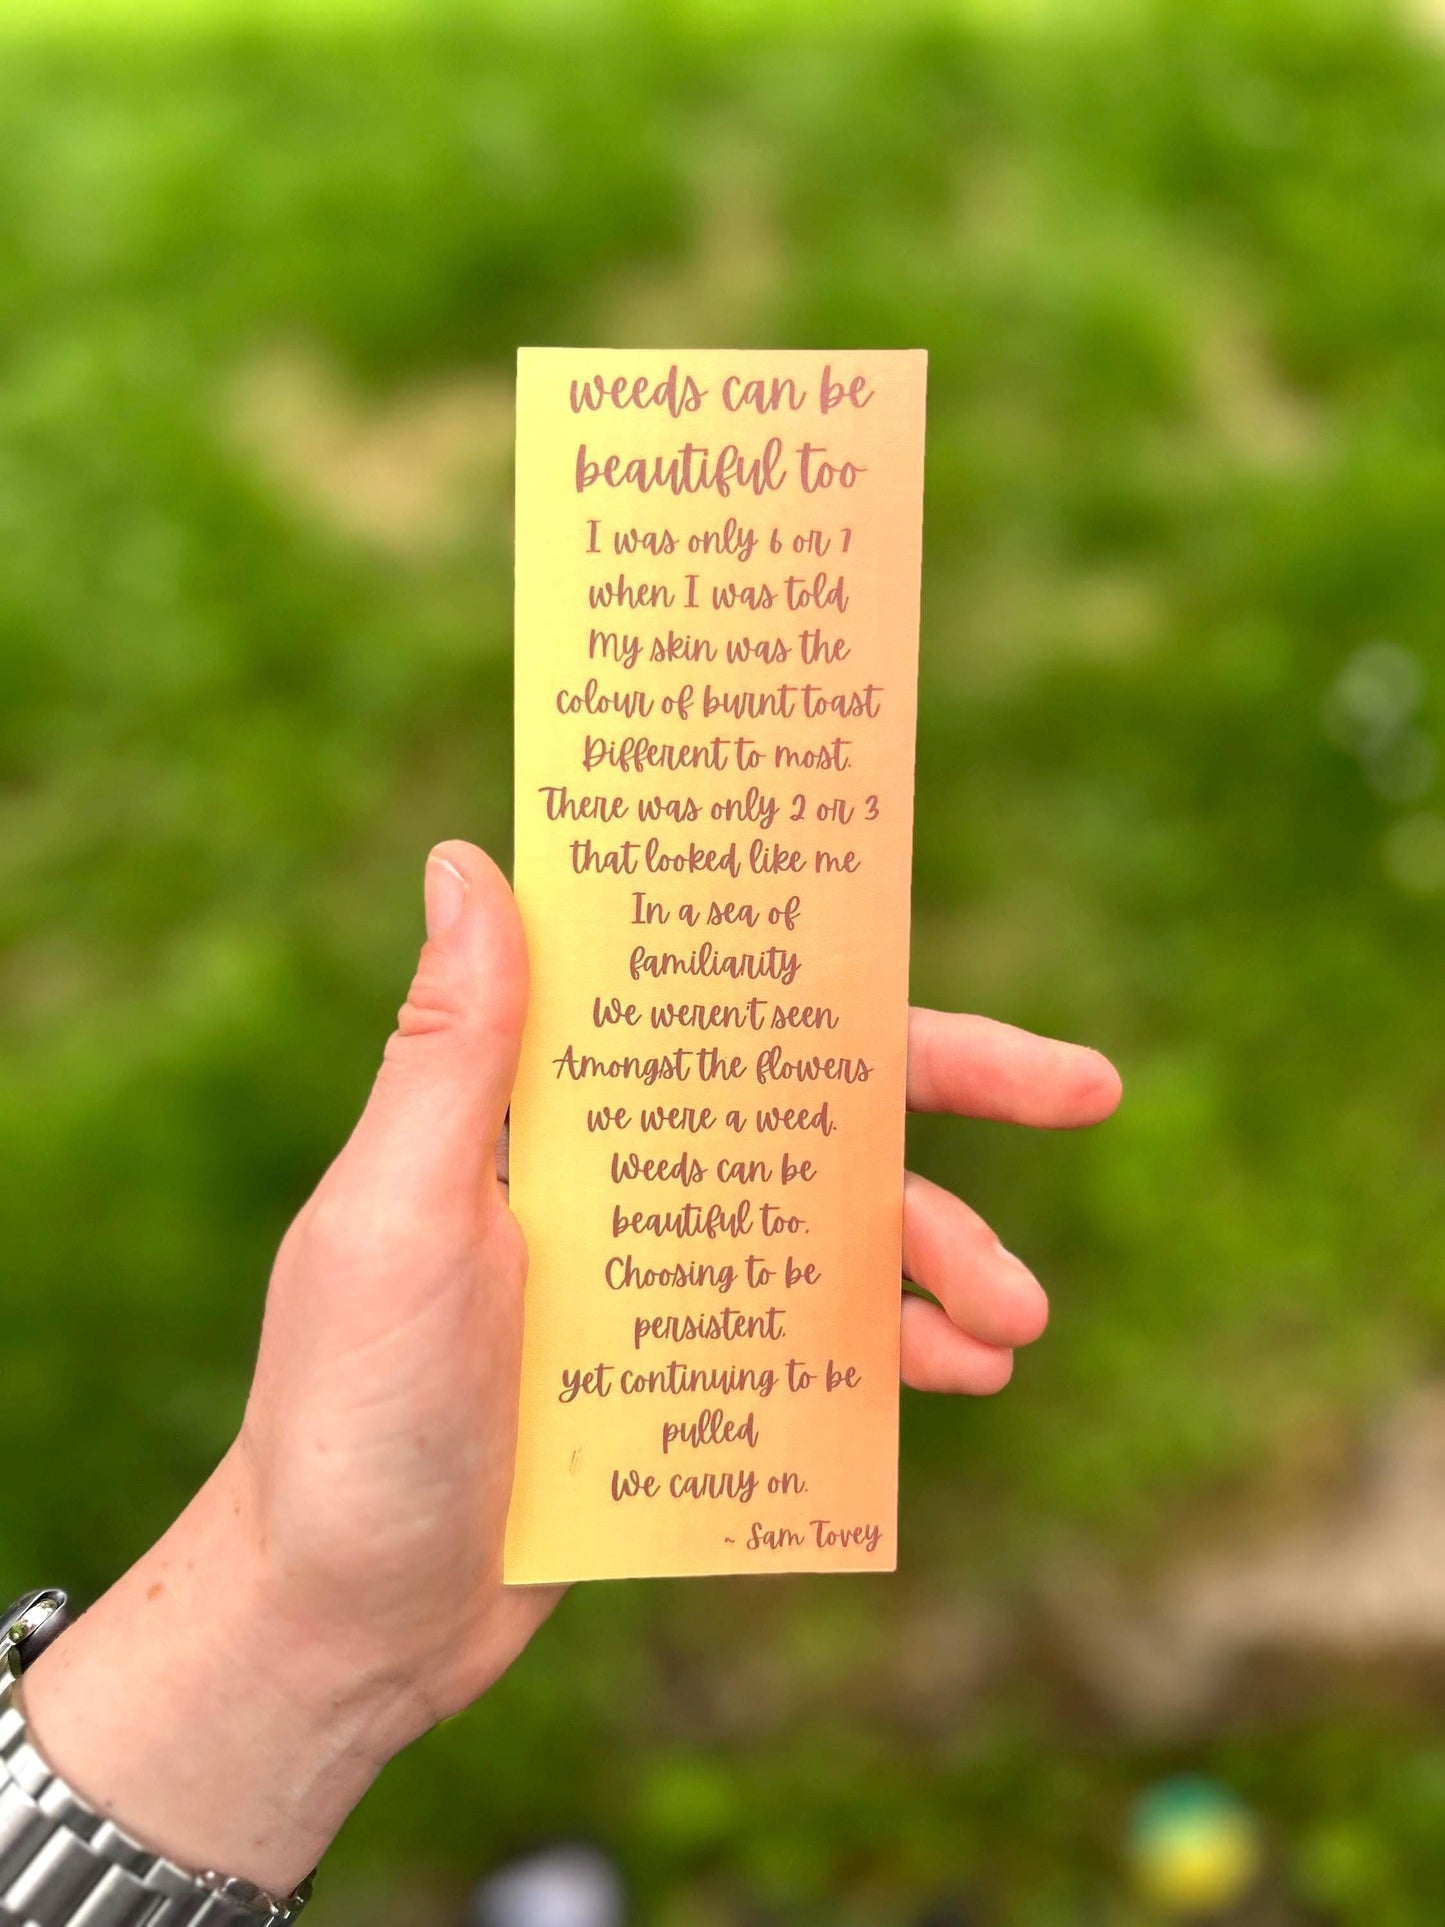 weeds can be
beautiful too
I was only 6 or 7
when I was told
My skin was the
colour of burnt toast
Different to most.
There was only 2 or 3
that looked like me
In a sea of
familiarity
We weren't seen
Amongst the flowers
we were a weed.
Weeds can be
beautiful too.
Choosing to be
persistent,
yet continuing to be
pulled
We carry on.
~ Sam Tovey